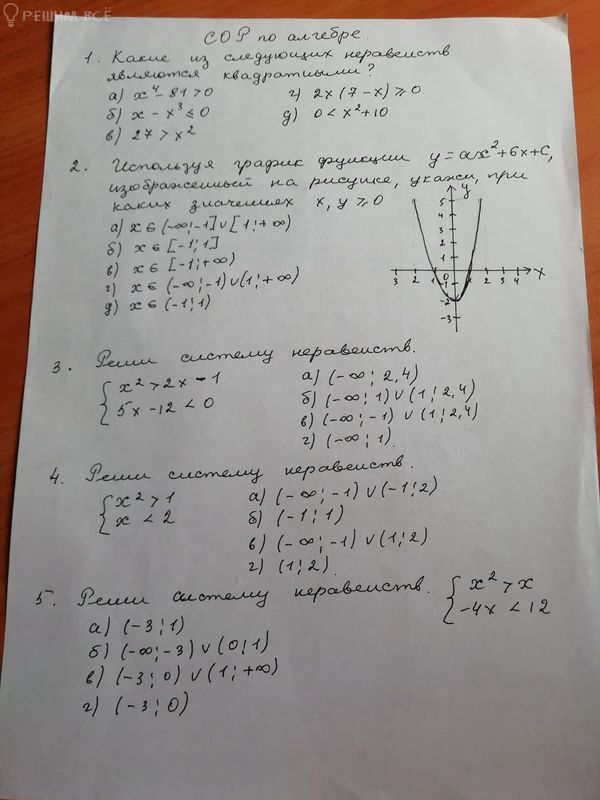 РЕШИМ ВСЁ
СОР по алгебре.
1. Какие из следующих неравенств
являются квадратными?
а) x⁴ - 81 > 0
г) 2x(7-x) ≥ 0
б) x - x³ ≤ 0
д) 0 < x² + 10
в) 27 > x²
2. Используя график функции y = ax² + bx + c,
изображенный на рисунке, укажи, при
каких значениях x, y ≥ 0
а) x ∈ (-∞; -1] ∪ [1; +∞)
б) x ∈ [-1; 1]
в) x ∈ [-1; +∞)
г) x ∈ (-∞; -1) ∪ (1; +∞)
д) x ∈ (-1; 1)
y
5
4
3
2
1
0
-1
-2
-3
3 2 1 1 2 3 4 x
3. Реши систему неравенств.
{ x² > 2x - 1
5x - 12 < 0
а) (-∞; 2,4)
б) (-∞; 1) ∪ (1; 2,4)
в) (-∞; -1) ∪ (1; 2,4)
г) (-∞; 1).
4. Реши систему неравенств.
{ x² > 1
x < 2
а) (-∞; -1) ∪ (-1; 2)
б) (-1; 1)
в) (-∞; -1) ∪ (1; 2)
г) (1; 2).
5. Реши систему неравенств. { x² > x
-4x < 12
а) (-3; 1)
б) (-∞; -3) ∪ (0; 1)
в) (-3; 0) ∪ (1; +∞)
г) (-3; 0)